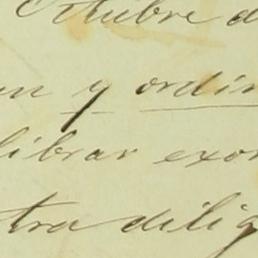 Octubre d
un y ordin
librar exor
tra dilig